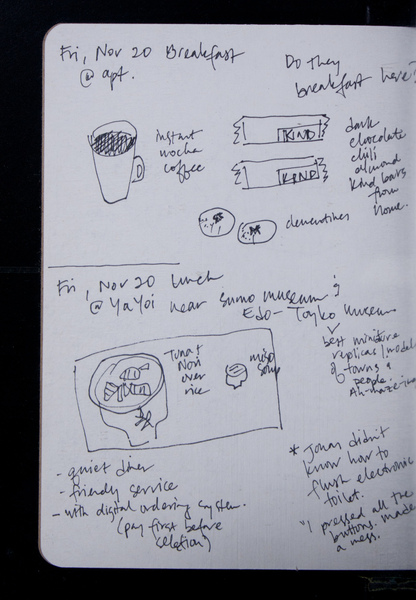 Fri, Nov 20 Breakfast
@ apt.
Do They
breakfast here?
instant
mocha
coffee
KIND
KIND
dark
chocolate
chili
almond
Kind bars
from
home.
clementines
Fri, Nov 20 lunch
@ YaYoi near sumo museum &
Edo-Toyko museum
best miniture
replicas/models
of towns &
people.
Ah-maze-ing
Tuna &
Nori
over
rice
miso
soup
- quiet diner
- friendly service
- with digital ordering system.
(pay first before
* Jonas didn't
know how to
flush electronic
toilet.
"I pressed all the
buttons. made
a mess.